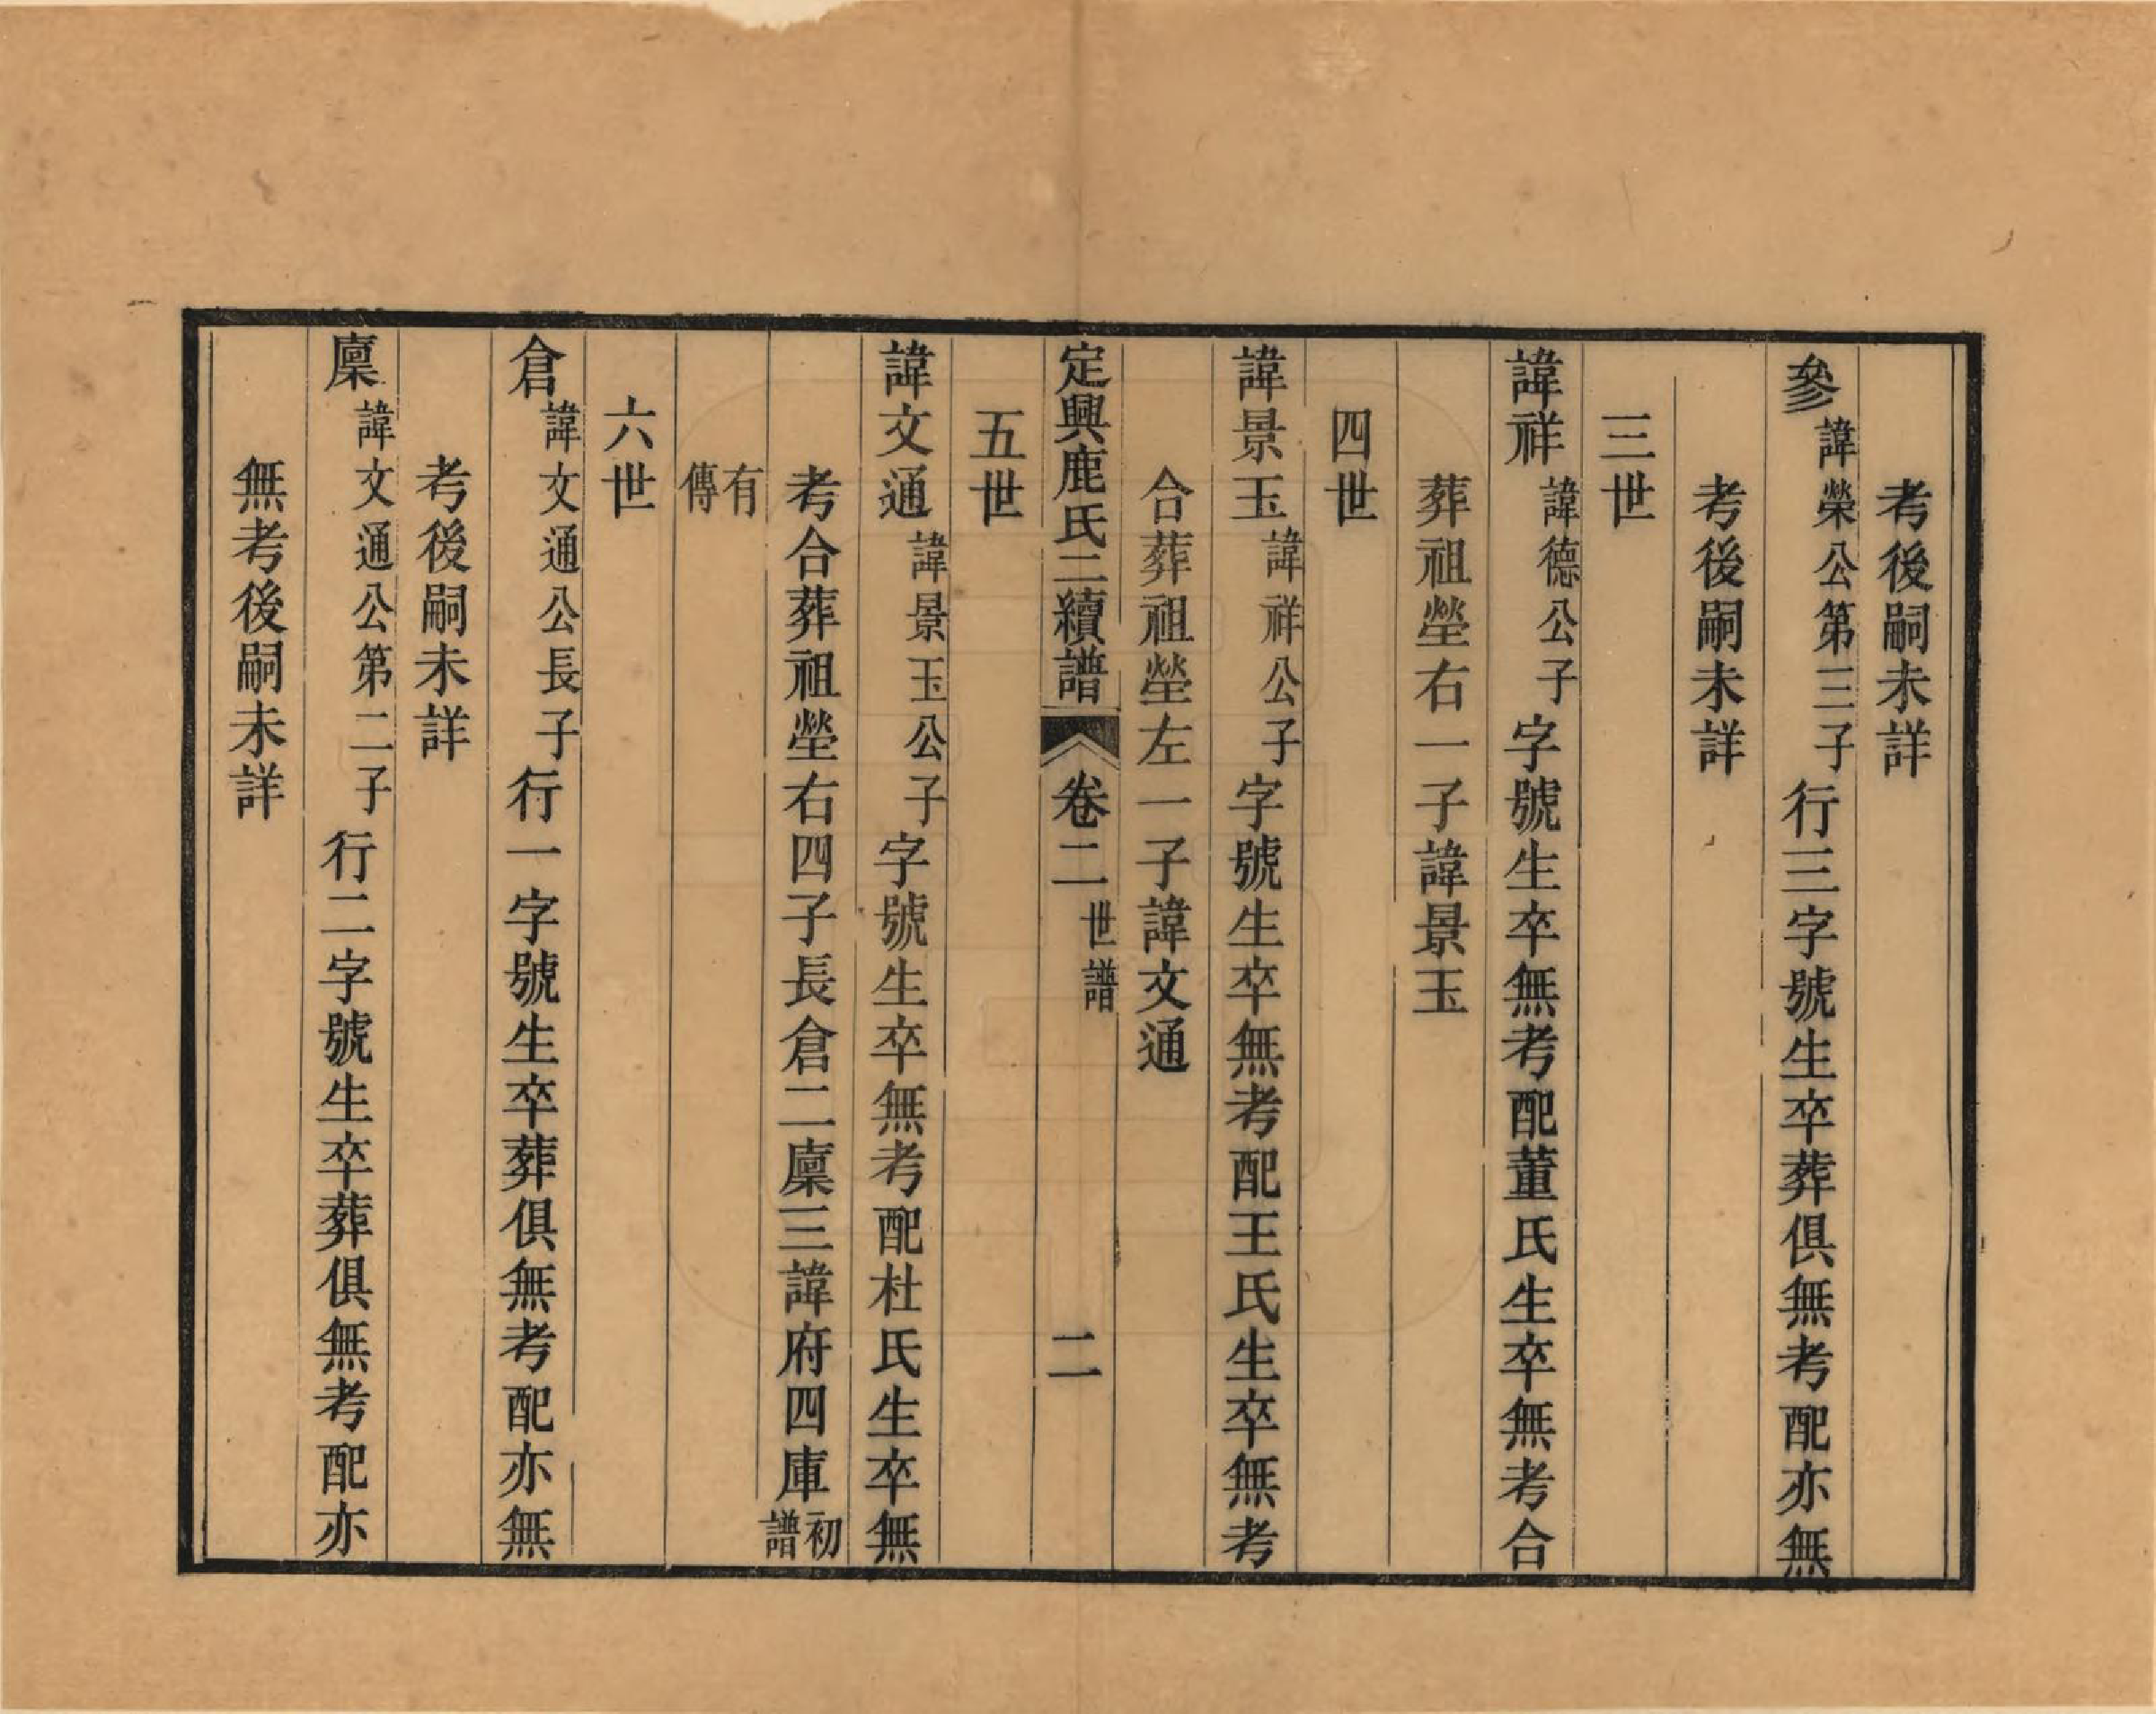 考後嗣未詳
參諱榮公第三子行三字號生卒葬俱無考配亦無
考後嗣未詳
三世
諱祥諱德公子字號生卒無考配董氏生卒無考合
葬祖塋右一子諱景玉
四世
諱景玉諱祥公子字號生卒無考配王氏生卒無考
合葬祖塋左一子諱文通
定興鹿氏二續譜 卷二世譜 二
五世
諱文通諱景玉公子字號生卒無考配杜氏生卒無
考合葬祖塋右四子長倉二廩三諱府四庫初譜
有傳
六世
倉諱文通公長子行一字號生卒葬俱無考配亦無
考後嗣未詳
廩諱文通公第二子行二字號生卒葬俱無考配亦
無考後嗣未詳